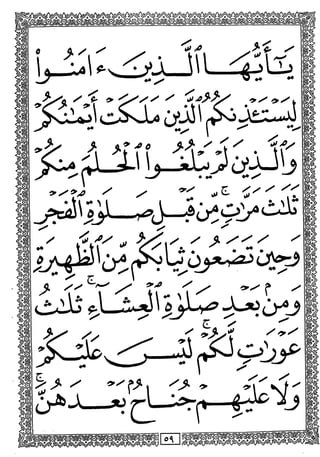 يَـٰٓأَيُّهَا ٱلَّذِينَ ءَامَنُوا۟
لِيَسْتَـْٔذِنكُمُ ٱلَّذِينَ مَلَكَتْ أَيْمَـٰنُكُمْ
وَٱلَّذِينَ لَمْ يَبْلُغُوا۟ ٱلْحُلُمَ مِنكُمْ
ثَلَـٰثَ مَرَّٰتٍۚ مِّن قَبْلِ صَلَوٰةِ ٱلْفَجْرِ
وَحِينَ تَضَعُونَ ثِيَابَكُم مِّنَ ٱلظَّهِيرَةِ
وَمِنۢ بَعْدِ صَلَوٰةِ ٱلْعِشَآءِۚ ثَلَـٰثُ
عَوْرَٰتٍ لَّكُمْۚ لَيْسَ عَلَيْكُمْ
وَلَا عَلَيْهِمْ جُنَاحٌۢ بَعْدَهُنَّۚ
٥٩